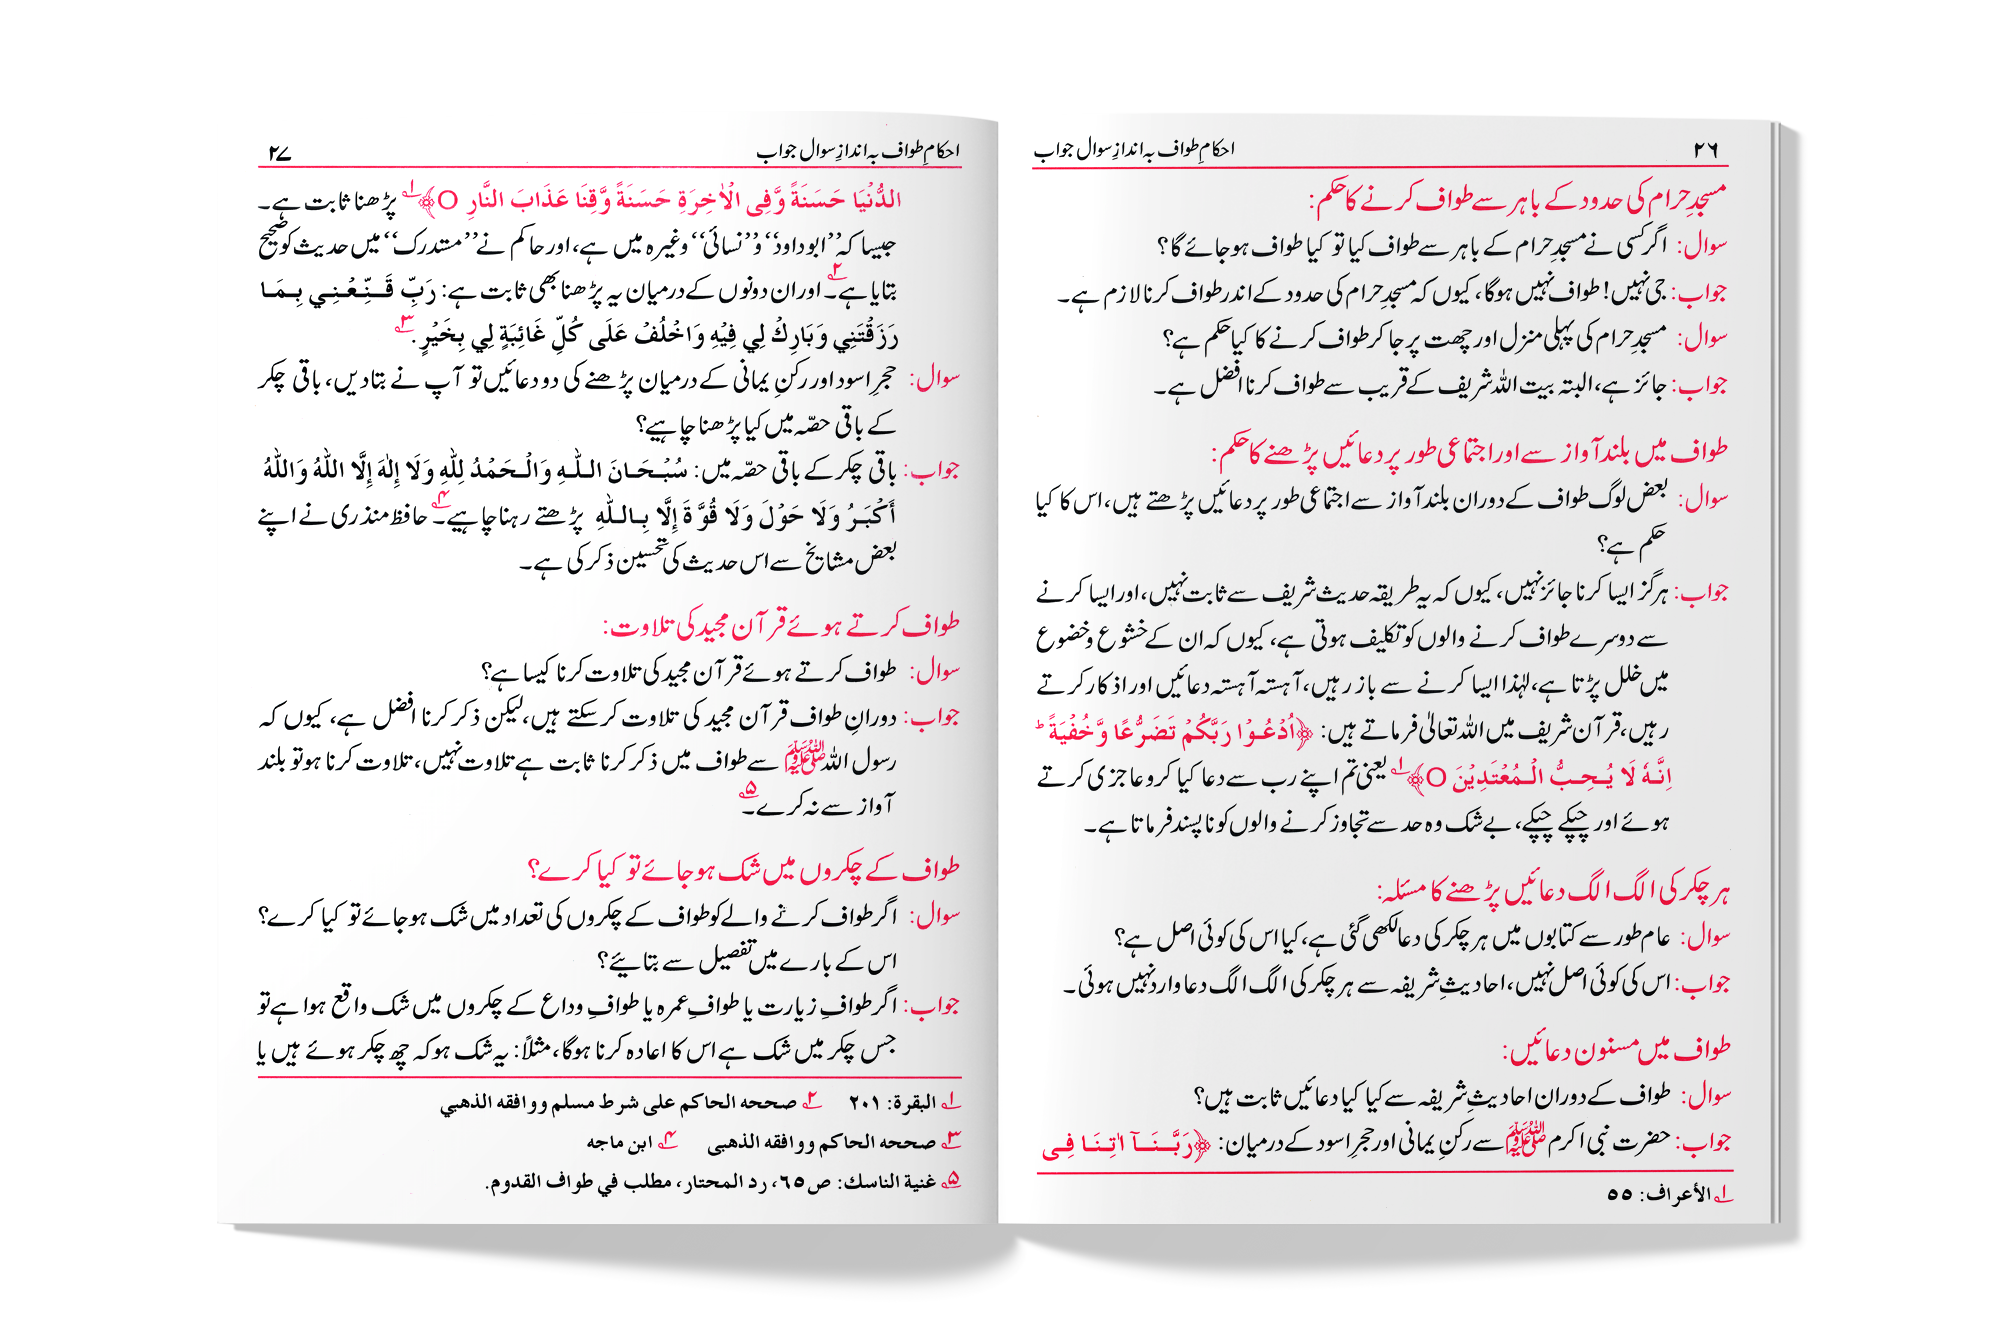 ۲۶
احکامِ طواف بہ اندازِ سوال جواب
مسجدِ حرام کی حدود کے باہر سے طواف کرنے کا حکم:
سوال: اگر کسی نے مسجدِ حرام کے باہر سے طواف کیا تو کیا طواف ہو جائے گا؟
جواب: جی نہیں! طواف نہیں ہوگا، کیوں کہ مسجدِ حرام کی حدود کے اندر طواف کرنا لازم ہے۔
سوال: مسجدِ حرام کی پہلی منزل اور چھت پر جا کر طواف کرنے کا کیا حکم ہے؟
جواب: جائز ہے، البتہ بیت اللہ شریف کے قریب سے طواف کرنا افضل ہے۔
طواف میں بلند آواز سے اور اجتماعی طور پر دعائیں پڑھنے کا حکم:
سوال: بعض لوگ طواف کے دوران بلند آواز سے اجتماعی طور پر دعائیں پڑھتے ہیں، اس کا کیا
حکم ہے؟
جواب: ہرگز ایسا کرنا جائز نہیں، کیوں کہ یہ طریقہ حدیث شریف سے ثابت نہیں، اور ایسا کرنے
سے دوسرے طواف کرنے والوں کو تکلیف ہوتی ہے، کیوں کہ ان کے خشوع وخضوع
میں خلل پڑتا ہے، لہٰذا ایسا کرنے سے باز رہیں، آہستہ آہستہ دعائیں اور اذکار کرتے
رہیں، قرآن شریف میں اللہ تعالیٰ فرماتے ہیں: ﴿اُدْعُوْا رَبَّكُمْ تَضَرُّعًا وَّخُفْيَةً ؕ
اِنَّهٗ لَا يُحِبُّ الْمُعْتَدِيْنَ ○﴾ ۱؎ یعنی تم اپنے رب سے دعا کیا کرو عاجزی کرتے
ہوئے اور چپکے چپکے، بے شک وہ حد سے تجاوز کرنے والوں کو نا پسند فرماتا ہے۔
ہر چکر کی الگ الگ دعائیں پڑھنے کا مسئلہ:
سوال: عام طور سے کتابوں میں ہر چکر کی دعا لکھی گئی ہے، کیا اس کی کوئی اصل ہے؟
جواب: اس کی کوئی اصل نہیں، احادیثِ شریفہ سے ہر چکر کی الگ الگ دعا وارد نہیں ہوئی۔
طواف میں مسنون دعائیں:
سوال: طواف کے دوران احادیثِ شریفہ سے کیا کیا دعائیں ثابت ہیں؟
جواب: حضرت نبی اکرم ﷺ سے رکنِ یمانی اور حجرِ اسود کے درمیان: ﴿رَبَّنَآ اٰتِنَا فِی
۱؎ الأعراف: ٥٥
احکامِ طواف بہ اندازِ سوال جواب
۲۷
الدُّنْيَا حَسَنَةً وَّفِی الْاٰخِرَةِ حَسَنَةً وَّقِنَا عَذَابَ النَّارِ ○﴾ ۱؎ پڑھنا ثابت ہے۔
جیسا کہ ’’ابوداود‘‘ و’’نسائی‘‘ وغیرہ میں ہے، اور حاکم نے ’’مستدرک‘‘ میں حدیث کو صحیح
بتایا ہے۔ ۲؎ اور ان دونوں کے درمیان یہ پڑھنا بھی ثابت ہے: رَبِّ قَنِّعْنِي بِمَا
رَزَقْتَنِي وَبَارِكْ لِي فِيْهِ وَاخْلُفْ عَلَى كُلِّ غَائِبَةٍ لِي بِخَيْرٍ. ۳؎
سوال: حجرِ اسود اور رکنِ یمانی کے درمیان پڑھنے کی دو دعائیں تو آپ نے بتادیں، باقی چکر
کے باقی حصّہ میں کیا پڑھنا چاہیے؟
جواب: باقی چکر کے باقی حصّہ میں: سُبْحَانَ اللّٰهِ وَالْحَمْدُ لِلّٰهِ وَلَا إِلٰهَ إِلَّا اللّٰهُ وَاللّٰهُ
أَكْبَرُ وَلَا حَوْلَ وَلَا قُوَّةَ إِلَّا بِاللّٰهِ پڑھتے رہنا چاہیے۔ ۴؎ حافظ منذری نے اپنے
بعض مشایخ سے اس حدیث کی تحسین ذکر کی ہے۔
طواف کرتے ہوئے قرآن مجید کی تلاوت:
سوال: طواف کرتے ہوئے قرآن مجید کی تلاوت کرنا کیسا ہے؟
جواب: دورانِ طواف قرآن مجید کی تلاوت کر سکتے ہیں، لیکن ذکر کرنا افضل ہے، کیوں کہ
رسول اللہ ﷺ سے طواف میں ذکر کرنا ثابت ہے تلاوت نہیں، تلاوت کرنا ہو تو بلند
آواز سے نہ کرے۔ ۵؎
طواف کے چکروں میں شک ہو جائے تو کیا کرے؟
سوال: اگر طواف کرنے والے کو طواف کے چکروں کی تعداد میں شک ہو جائے تو کیا کرے؟
اس کے بارے میں تفصیل سے بتایئے؟
جواب: اگر طوافِ زیارت یا طوافِ عمرہ یا طوافِ وداع کے چکروں میں شک واقع ہوا ہے تو
جس چکر میں شک ہے اس کا اعادہ کرنا ہوگا، مثلاً: یہ شک ہو کہ چھ چکر ہوئے ہیں یا
۱؎ البقرة: ٢٠١ ۲؎ صححه الحاكم على شرط مسلم ووافقه الذهبي
۳؎ صححه الحاكم ووافقه الذهبی ۴؎ ابن ماجه
۵؎ غنية الناسك: ص٦٥، رد المحتار، مطلب في طواف القدوم.